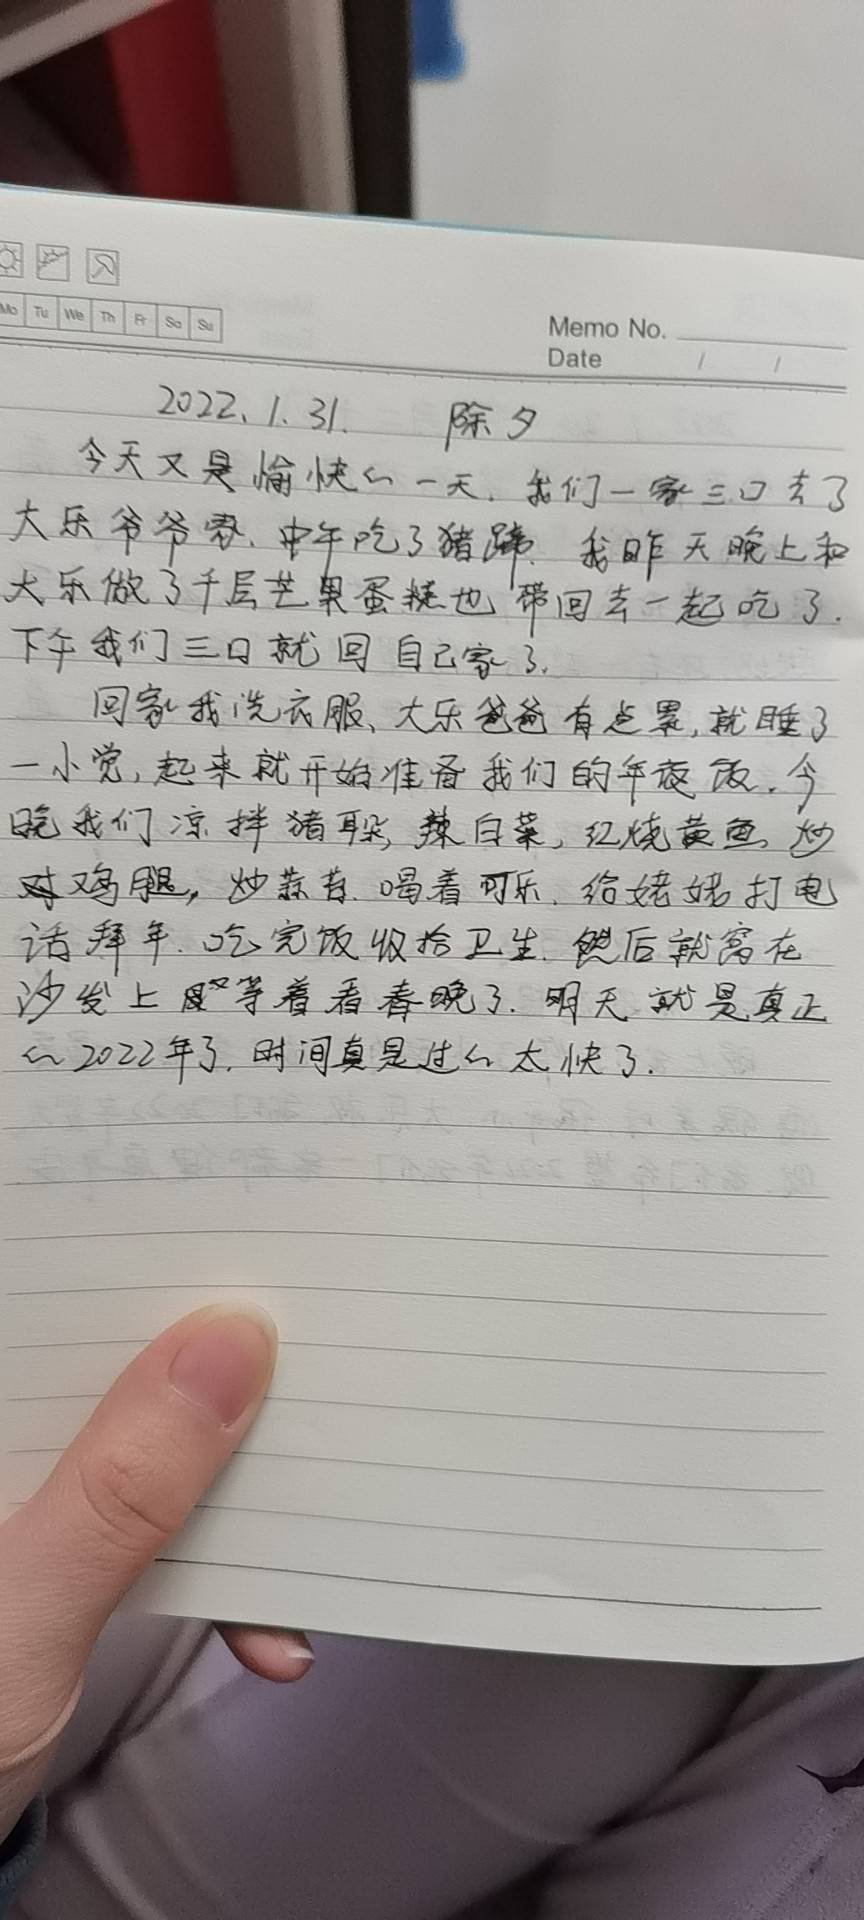 Mo Tu We Th Fr Sa Su
Memo No.
Date / /
2022.1.31. 除夕
今天又是愉快的一天。我们一家三口去了
大乐爷爷家.中午吃了猪蹄.我昨天晚上和
大乐做了千层芒果蛋糕也带回去一起吃了.
下午我们三口就回自己家了.
回家我洗衣服、大乐爸爸有点累,就睡了
一小觉,起来就开始准备我们的年夜饭.今
晚我们凉拌猪耳朵,辣白菜,红烧黄鱼,炒
鸡腿,炒蒜苔.喝着可乐.给姥姥打电
话拜年.吃完饭收拾卫生.然后就窝在
沙发上等着看春晚了.明天就是真正
的2022年了.时间真是过的太快了.